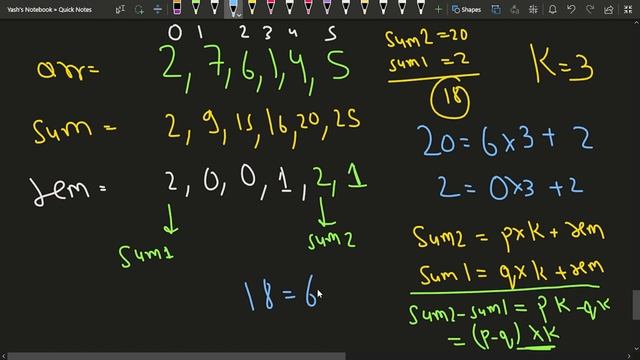 Yash's Notebook » Quick Notes
Shapes
0 1 2 3 4 5
arr= 2, 7, 6, 1, 4, 5
sum = 2, 9, 15, 16, 20, 25
rem = 2, 0, 0, 1, 2, 1
sum1
sum2
18 = 6
sum2 = 20
sum1 = 2
18
K=3
20 = 6x3 + 2
2 = 0x3 + 2
sum2 = pxk + rem
sum1 = qxk + rem
sum2-sum1 = pk - qk
= (p-q) xk